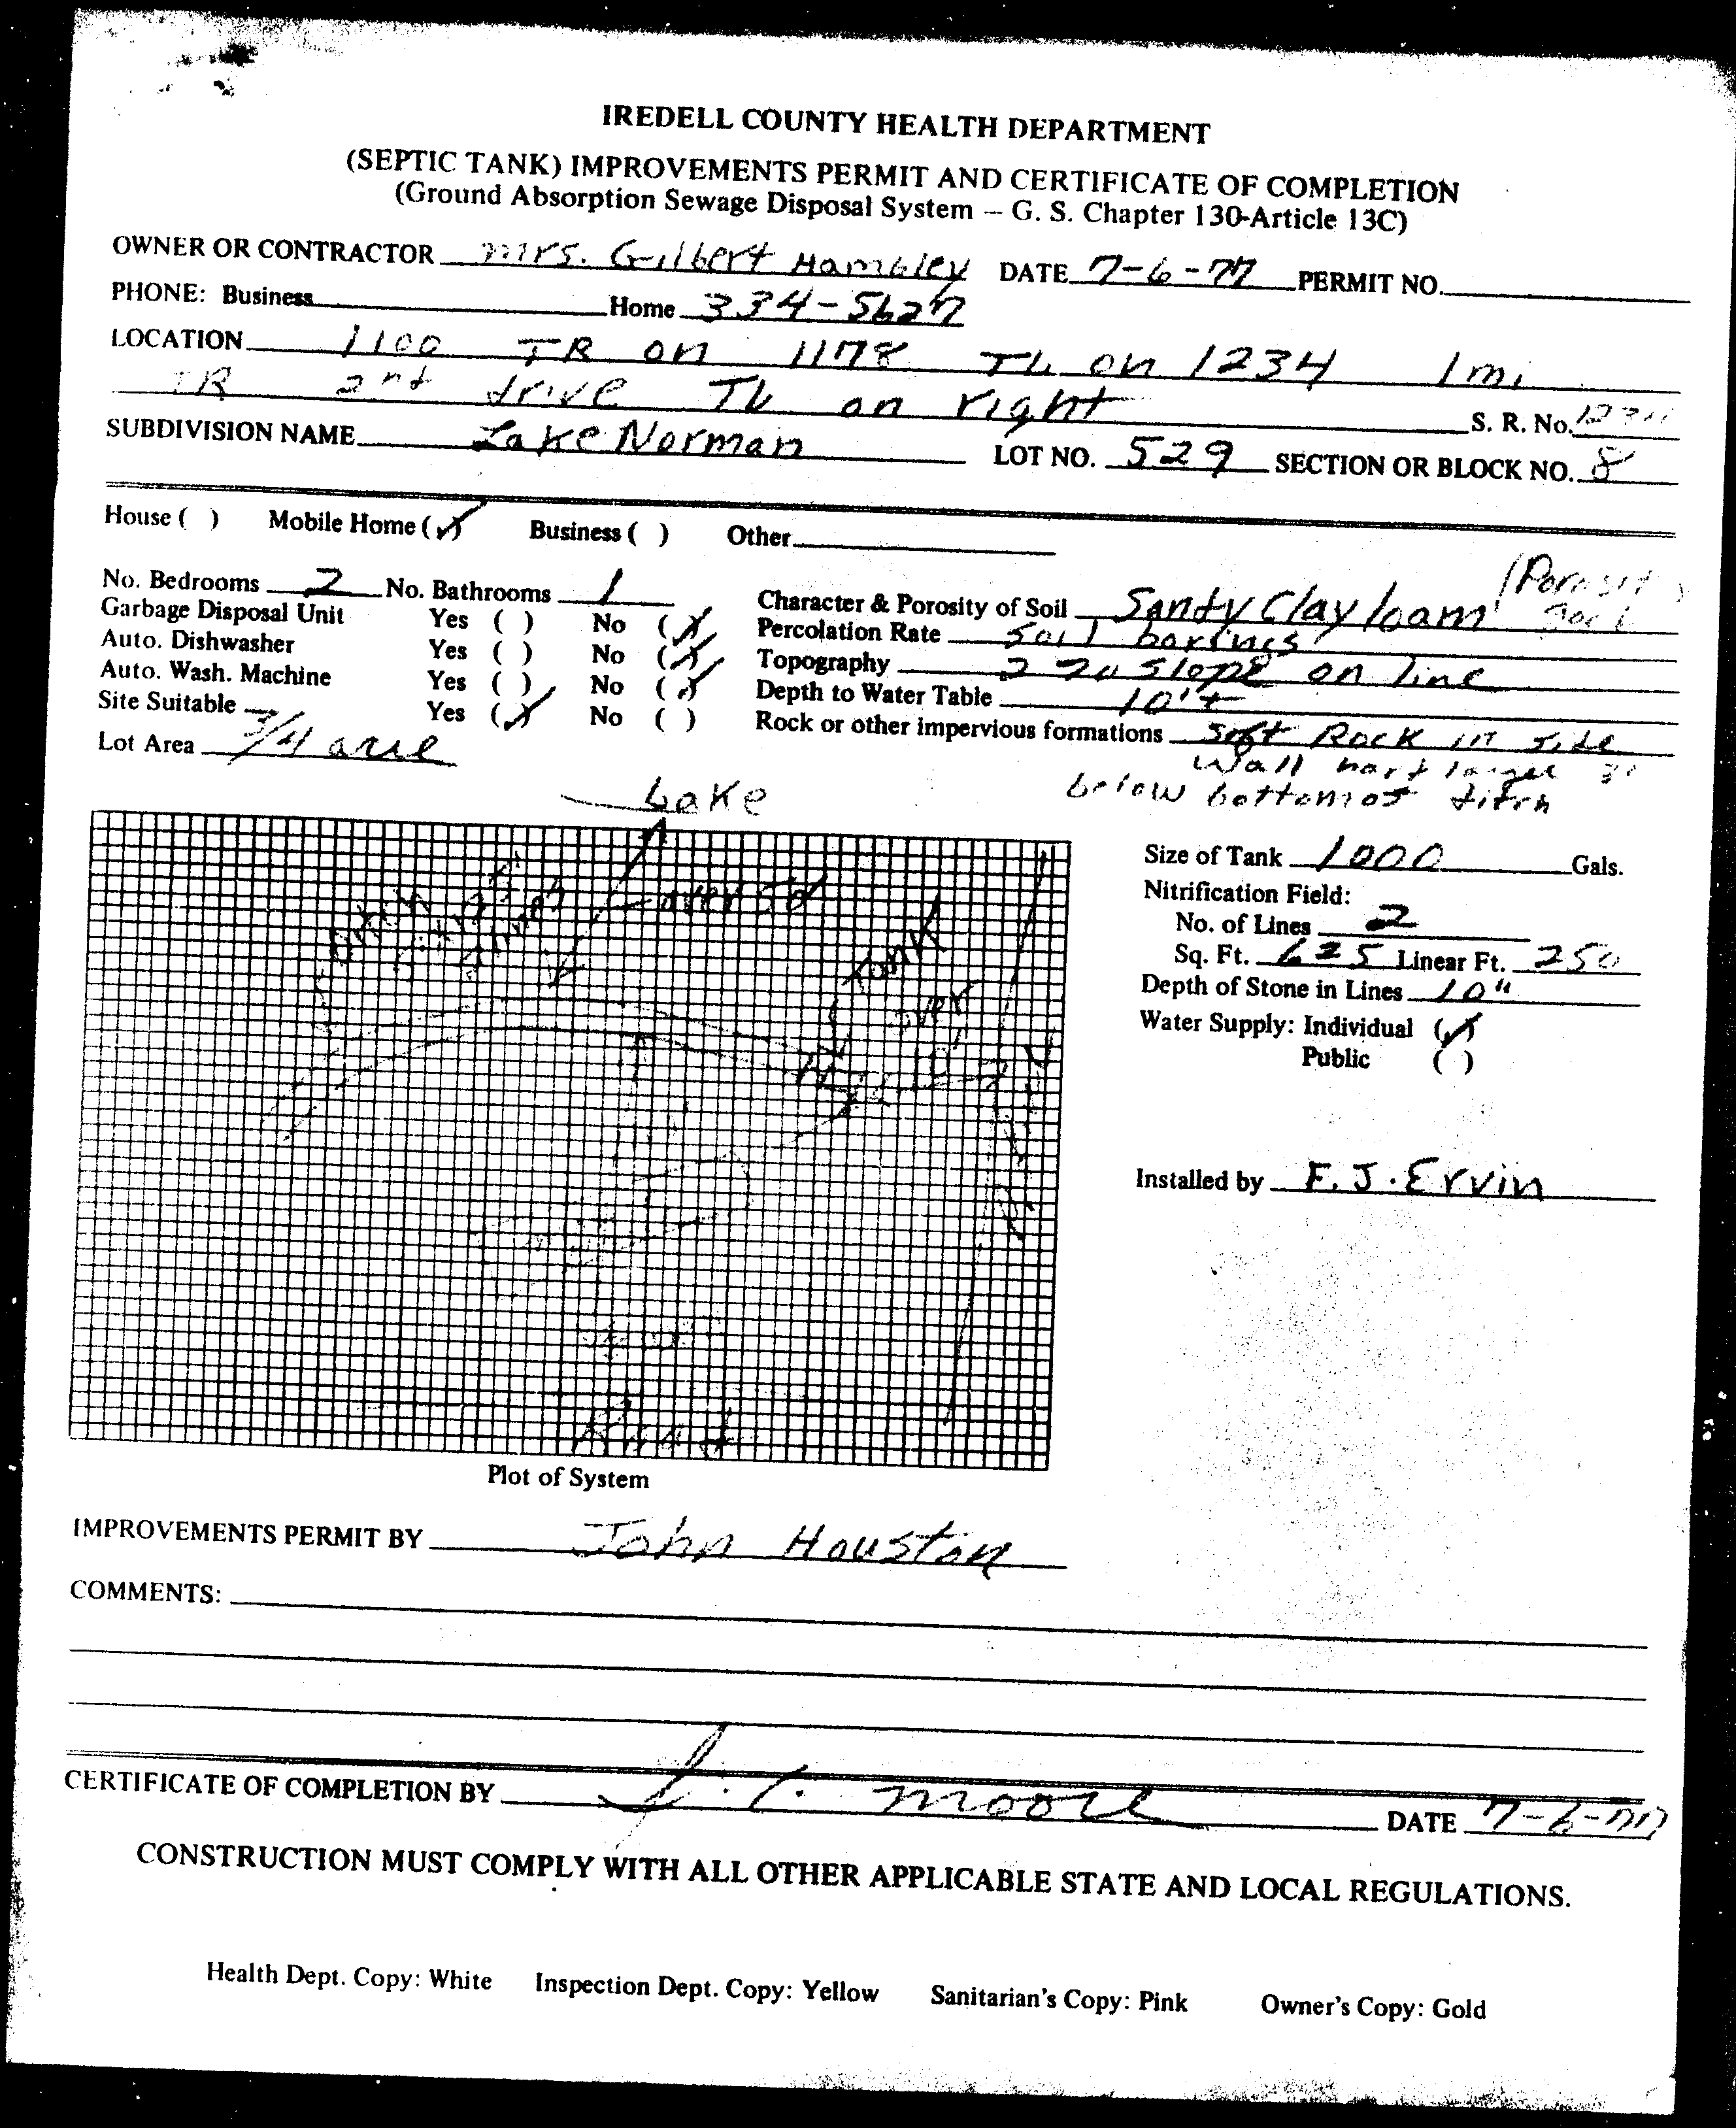 IREDELL COUNTY HEALTH DEPARTMENT
(SEPTIC TANK) IMPROVEMENTS PERMIT AND CERTIFICATE OF COMPLETION
(Ground Absorption Sewage Disposal System – G. S. Chapter 130-Article 13C)
OWNER OR CONTRACTOR Mrs. Gilbert Hambley DATE 7-6-77 PERMIT NO.
PHONE: Business Home 334-5627
LOCATION 1100 TR on 1178 TL on 1234 1 mi
TR 2nd drive TL on right S. R. No. 1234
SUBDIVISION NAME Lake Norman LOT NO. 529 SECTION OR BLOCK NO. 8
House ( ) Mobile Home (✓) Business ( ) Other
No. Bedrooms 2 No. Bathrooms 1 Character & Porosity of Soil Sandy Clay loam (Porosity
Garbage Disposal Unit Yes ( ) No (✓) Percolation Rate Soil borings
Auto. Dishwasher Yes ( ) No (✓) Topography 2 % slope on line
Auto. Wash. Machine Yes ( ) No (✓) Depth to Water Table 10'+
Site Suitable Yes (✓) No ( ) Rock or other impervious formations Soft Rock in side
Lot Area 3/4 acre wall
below bottom of ditch
Lake
over 50
Tank
over
Road
Size of Tank 1000 Gals.
Nitrification Field:
No. of Lines 2
Sq. Ft. 625 Linear Ft. 250
Depth of Stone in Lines 10"
Water Supply: Individual (✓)
Public ( )
Installed by F. J. Ervin
Plot of System
IMPROVEMENTS PERMIT BY John Houston
COMMENTS:
CERTIFICATE OF COMPLETION BY Moore DATE 7-6-77
CONSTRUCTION MUST COMPLY WITH ALL OTHER APPLICABLE STATE AND LOCAL REGULATIONS.
Health Dept. Copy: White Inspection Dept. Copy: Yellow Sanitarian's Copy: Pink Owner's Copy: Gold